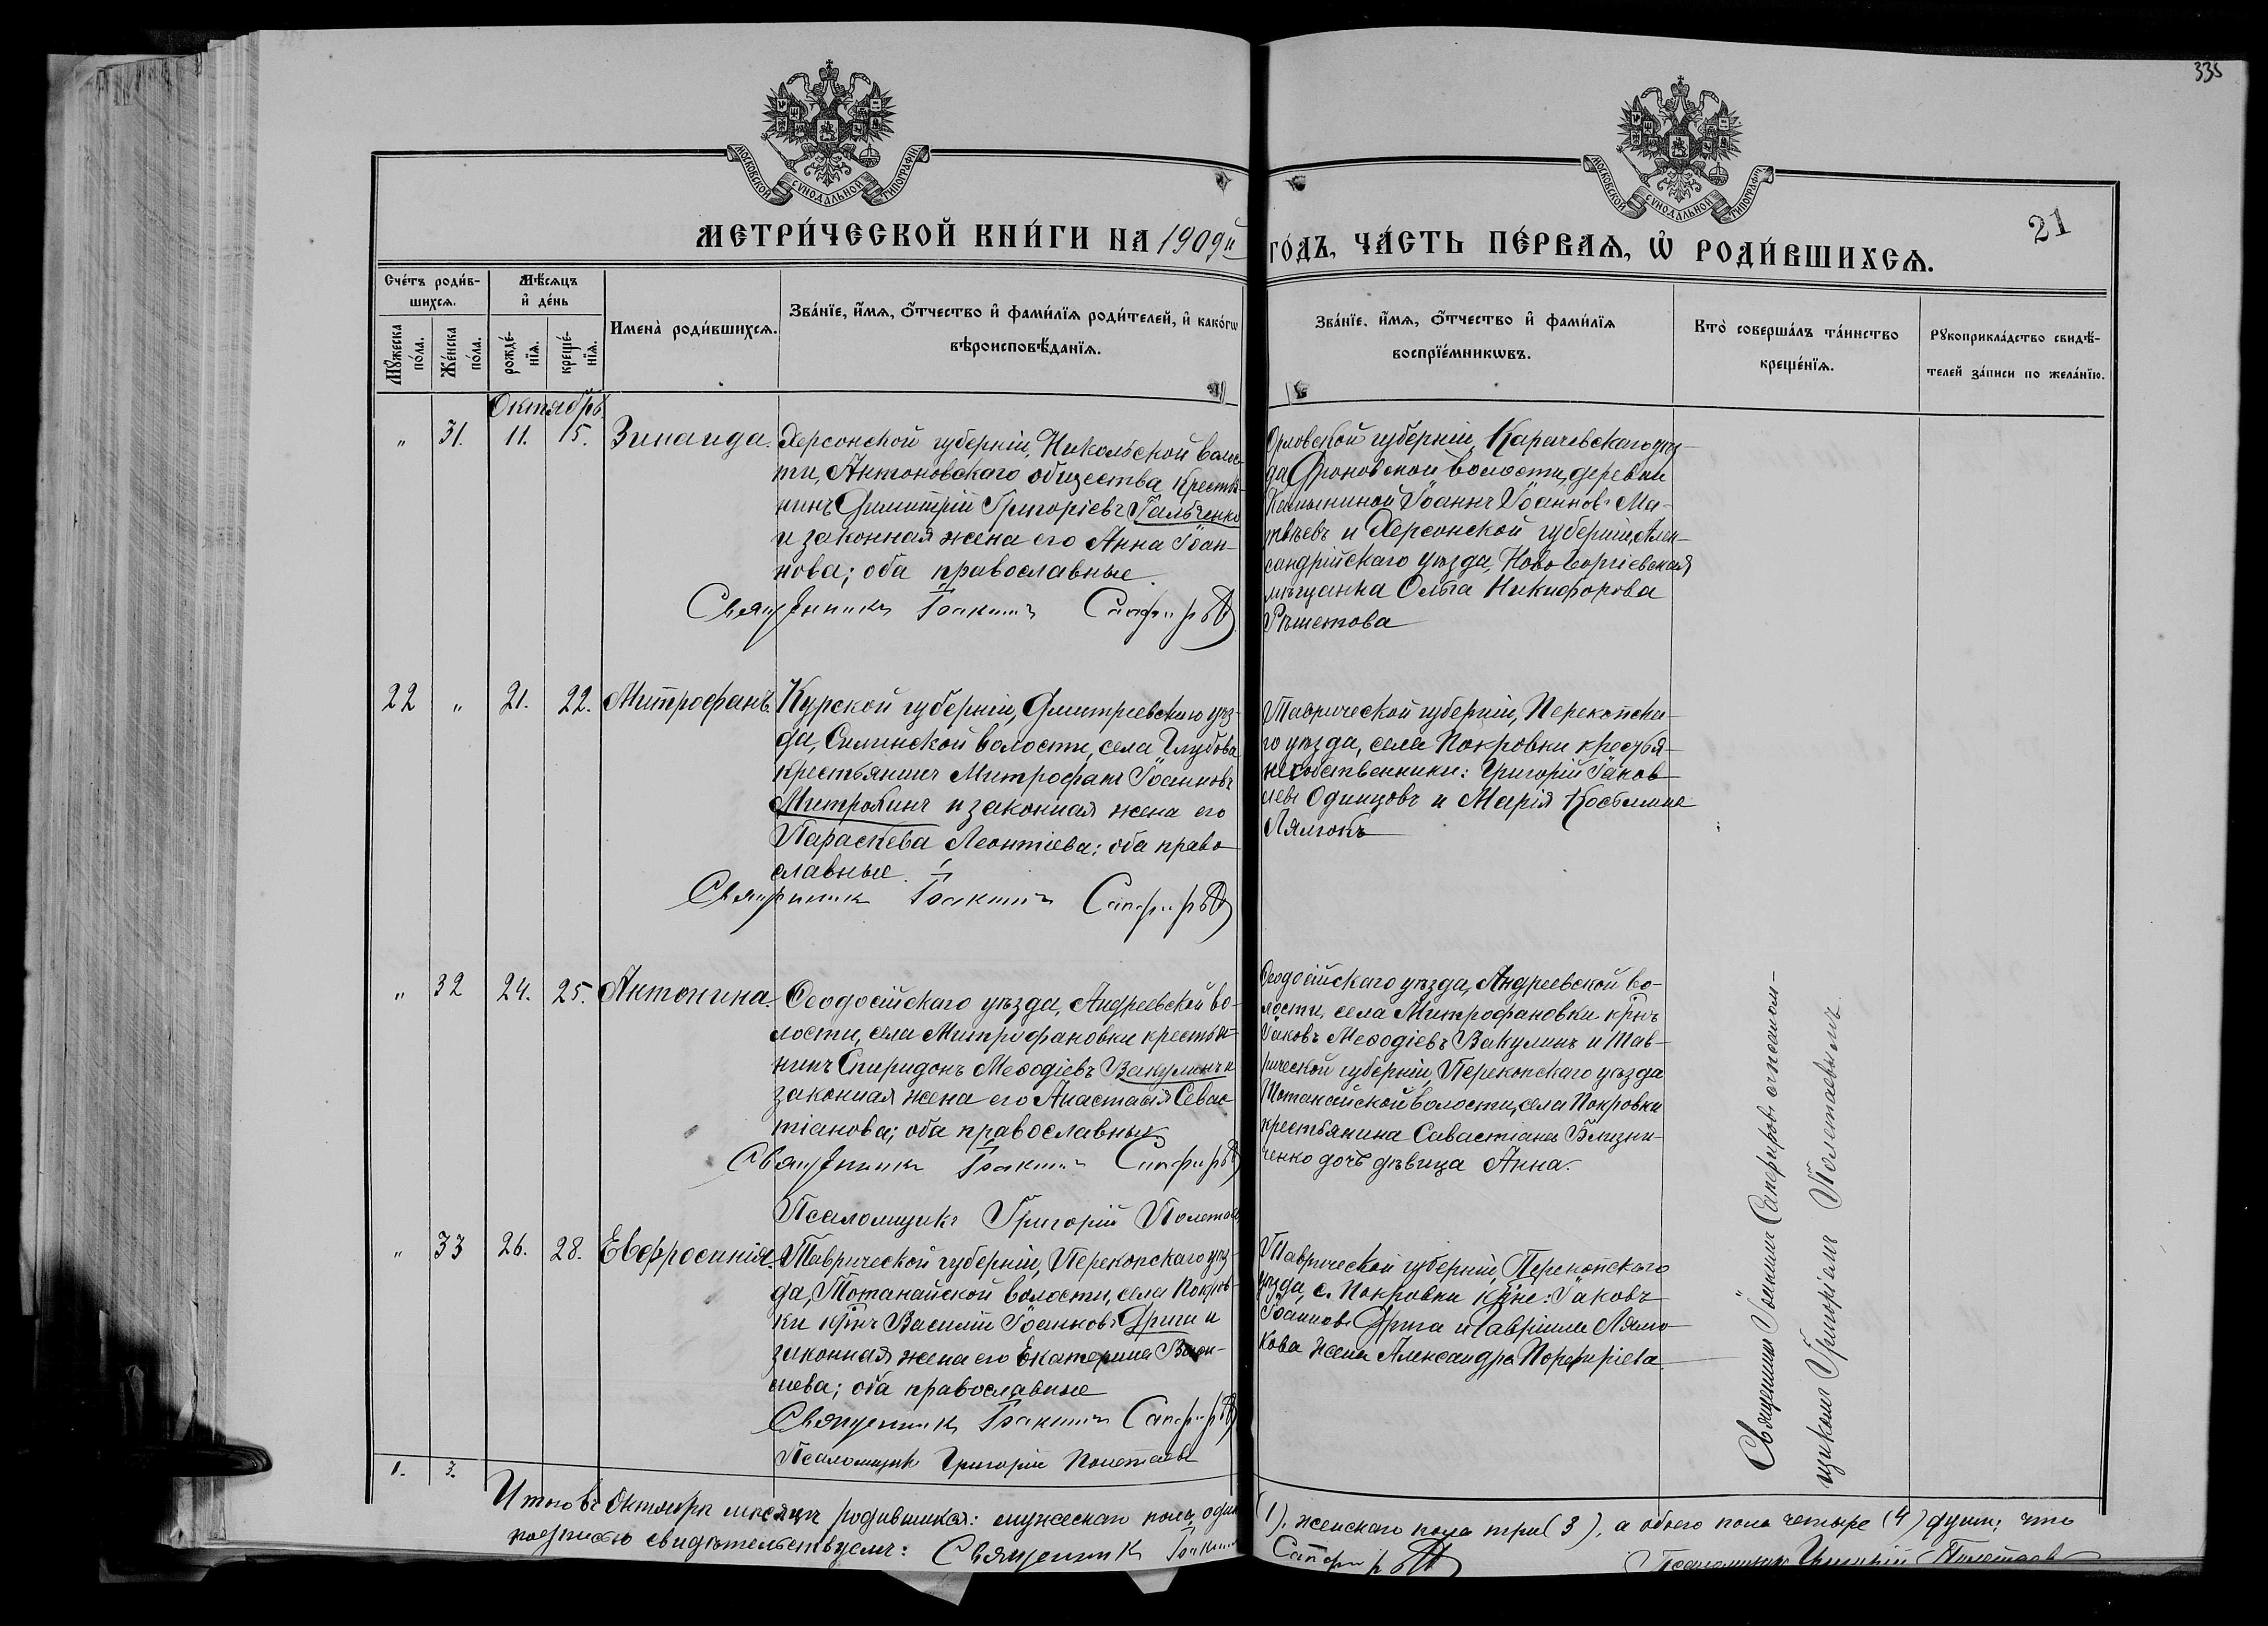 335
МОСКОВСКОЙ СУНОДАЛЬНОЙ ТИПОГРАФІИ
МОСКОВСКОЙ СУНОДАЛЬНОЙ ТИПОГРАФІИ
МЕТРИ́ЧЕСКОЙ КНИ́ГИ НА 1909й
ГО́ДЪ, ЧА́СТЬ ПЕ́РВАѦ, Ѡ҆ РОДИ́ВШИХСѦ.
21
Сче́тъ роди́в-
шихсѧ.
Мꙋ́жеска
по́ла.
Же́нска
по́ла.
Мѣ́сѧцъ
и҆ де́нь
рожде́-
нїѧ.
креще́-
нїѧ.
Имена̀ роди́вшихсѧ.
Зва́нїе, и҆́мѧ, ѻ҆́тчество и҆ фами́лїѧ роди́телей, и҆ како́гѡ
вѣроисповѣ́данїѧ.
Зва́нїе, и҆́мѧ, ѻ҆́тчество и҆ фами́лїѧ
воспрїе́мникѡвъ.
Кто̀ соверша́лъ та́инство
креще́нїѧ.
Рꙋкоприкла́дство свидѣ́-
телей за́писи по жела́нїю.
Октябрь
" 31. 11. 15. Зинаида.
Херсонской губерніи, Никольской волос-
ти, Антоновскаго общества крестья-
нинъ Димитрій Григоріевъ Гальченко
и законная жена его Анна Іоан-
нова; оба православные.
Священникъ Іоакимъ Сапфировъ
Орловской губерніи, Карачевскаго уѣз-
да Дроновской волости, деревни
Іоаннъ Іоанновъ Мат-
вѣевъ и Херсонской губерніи, Алек-
сандрійскаго уѣзда, Новогеоргіевская
мѣщанка Ольга Никифорова
Рѣшетова
22 " 21. 22. Митрофанъ.
Курской губерніи, Дмитріевскаго уѣз-
да, Селинской волости, села Глубова
крестьянинъ Митрофанъ Іоанновъ
Митрохинъ и законная жена его
Параскева Леонтіева; оба право-
славные.
Священникъ Іоакимъ Сапфировъ
Таврической губерніи, Перекопска-
го уѣзда, села Покровки крестья-
не собственники: Григорій Іаков-
левъ Одинцовъ и Марія
Лямокъ
" 32 24. 25. Антонина.
Ѳеодосійскаго уѣзда, Андреевской во-
лости, села Митрофановки крестья-
нинъ Спиридонъ Меѳодіевъ Вакулинъ и
законная жена его Анастасія Севас-
тіанова; оба православные
Священникъ Іоакимъ Сапфировъ
Псаломщикъ Григорій Полетаевъ
Ѳеодосійскаго уѣзда, Андреевской во-
лости, села Митрофановки кр̃нъ
Іаковъ Меѳодіевъ Вакулинъ и Тав-
рической губерніи, Перекопскаго уѣзда
Тотанайской волости, села Покровки
крестьянина Савастіана Близни-
ченко дочь дѣвица Анна.
" 33 26. 28. Евфросинія.
Таврической губерніи, Перекопскаго уѣз-
да, Тотанайской волости, села Покров-
ки кр̃нъ Василій Іоанновъ Дрига и
законная жена его Екатерина
оба православные
Священникъ Іоакимъ Сапфировъ
Псаломщикъ Григорій Полетаевъ
Таврической губерніи, Перекопскаго
уѣзда, с. Покровки кр̃не: Іаковъ
Іоанновъ Дрига и Гавріила Лямо-
кова жена Александра Порфиріева.
Священникъ Іоакимъ Сапфировъ съ псалом-
щикомъ Григоріемъ Полетаевымъ.
1. 3.
Итого въ Октябрѣ мѣсяцѣ родившихся: мужескаго пола одинъ (1), женскаго пола три (3), а обоего пола четыре (4) души; что
подписью свидѣтельствуемъ: Священникъ Іоакимъ Сапфировъ Псаломщикъ Григорій Полетаевъ